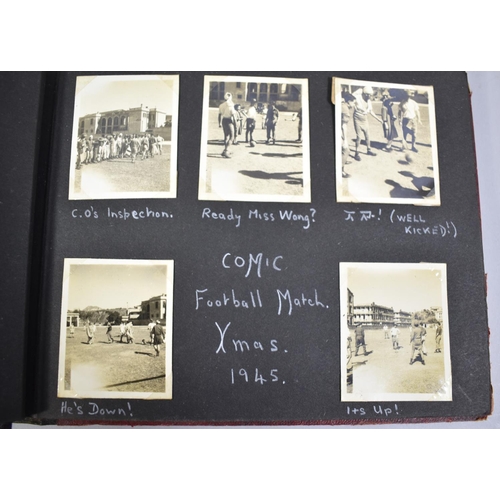 C.O's Inspection.
Ready Miss Wong?
(WELL
KICKED!)
COMIC
Football Match.
Xmas.
1945.
He's Down!
Its Up!